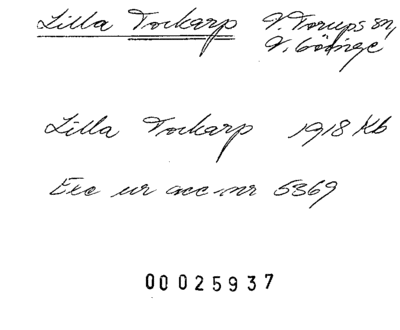 Lilla Torkarp V. Torups sn,
V. Göinge
Lilla Torkarp 1918 Kb
Exc ur acc. nr 5369
00025937